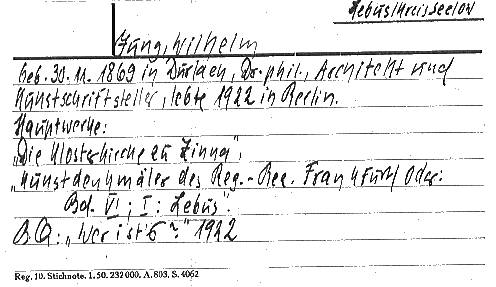 Lebus/Kreis Seelow
Jung, Wilhelm
Geb. 30.11.1869 in Durlach, Dr. phil., Architekt und
Kunstschriftsteller, lebte 1922 in Berlin.
Hauptwerke:
„Die Klosterkirche zu Zinna",
„Kunstdenkmäler des Reg.-Bez. Frankfurt/Oder:
Bd. VI; I: Lebus".
B.Q.: „Wer ist's?" 1922
Reg. 10. Stichnote. 1. 50. 232000. A. 803. S. 4062